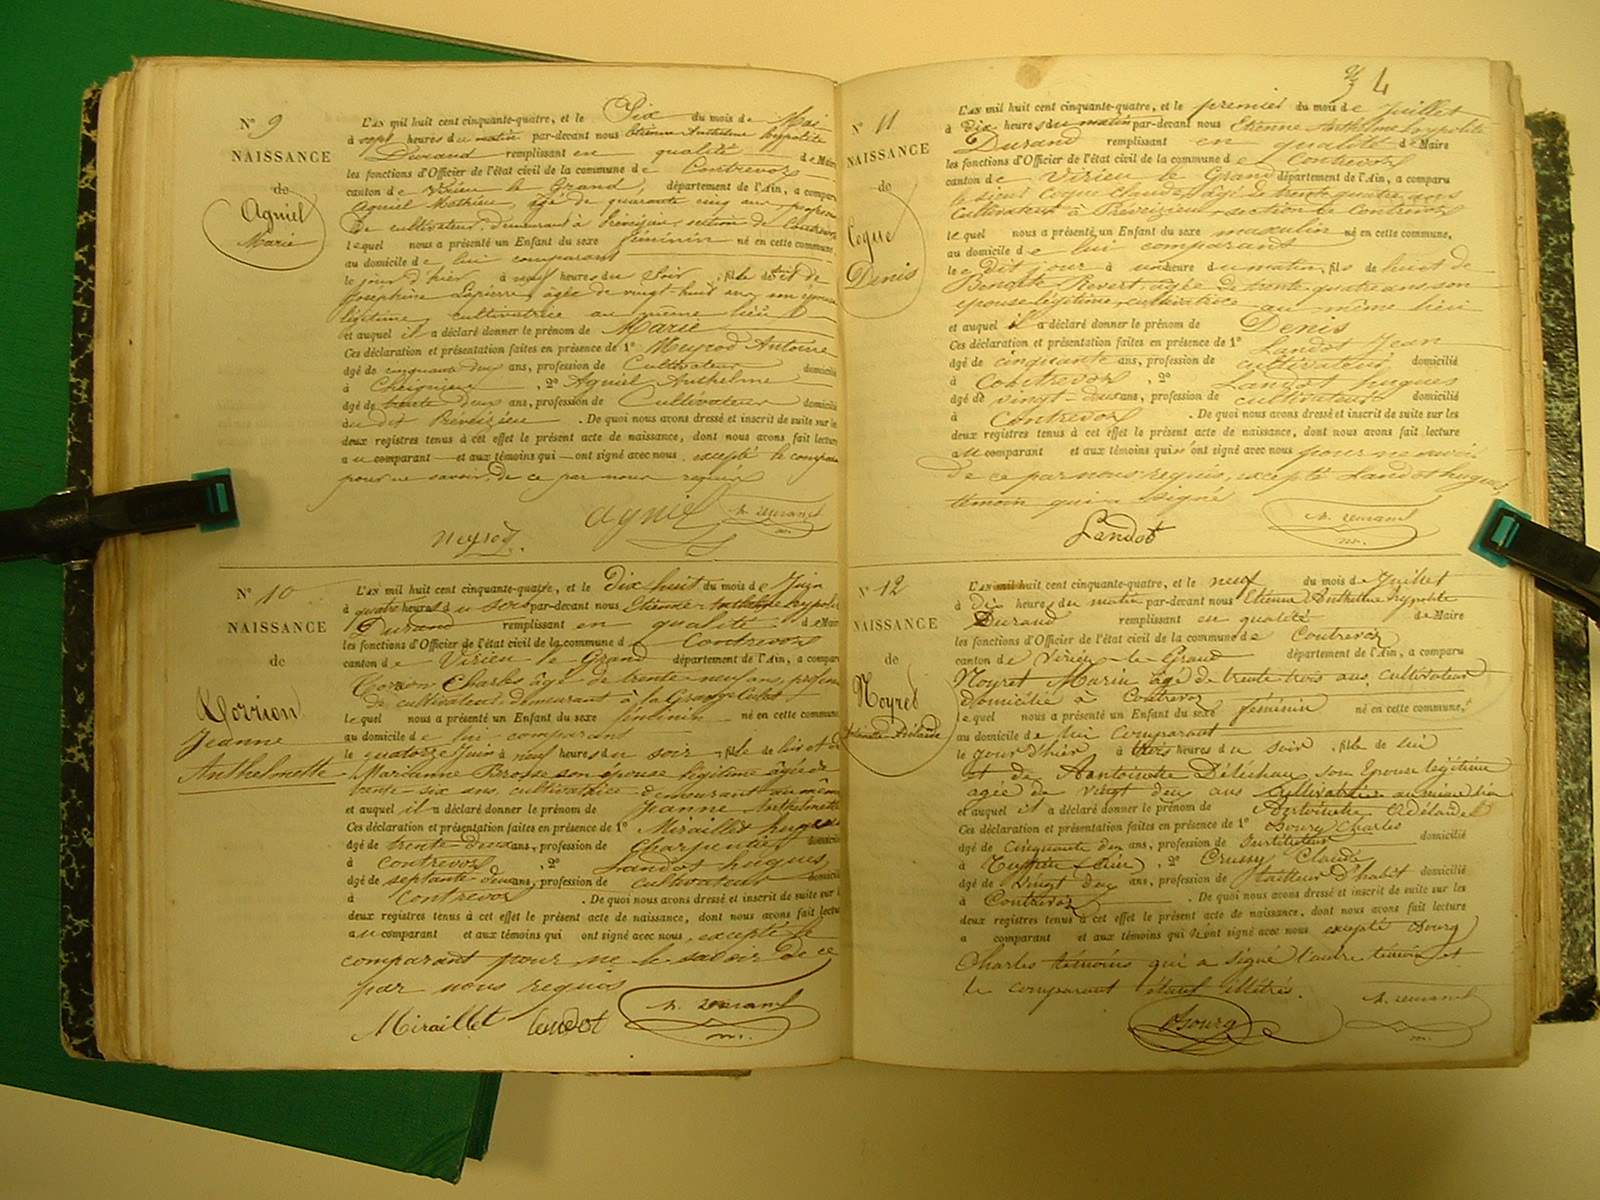 N° 9
NAISSANCE
de
Aguiel
Marie
L'AN mil huit cent cinquante-quatre, et le Six du mois de Mai
à sept heures du matin par-devant nous Etienne Anthelme hyppolite
Durand remplissant en qualité de Maire
les fonctions d'Officier de l'état civil de la commune de Contrevoz
canton de Virieu le Grand, département de l'Ain, a comparu
Aguiel Mathieu, âgé de quarante cinq ans, profession
de cultivateur, demeurant à Prèveizieu, section de Contrevoz
lequel nous a présenté un Enfant du sexe féminin né en cette commune,
au domicile de lui comparant
le jour d'hier à neuf heures du soir, fille de et de
Josephine Lapierre, âgée de vingt huit ans, son épouse
légitime, cultivatrice au même lieu
et auquel il a déclaré donner le prénom de Marie
Ces déclaration et présentation faites en présence de 1° Meyrod Antoine
âgé de cinquante deux ans, profession de Cultivateur domicilié
à Cheignieu, 2° Aguiel Anthelme
âgé de trente deux ans, profession de Cultivateur domicilié
au dit Prèveizieu. De quoi nous avons dressé et inscrit de suite sur les
deux registres tenus à cet effet le présent acte de naissance, dont nous avons fait lecture
au comparant et aux témoins qui ont signé avec nous, excepté le comparant
pour ne savoir, de ce par nous requis
aguiel h. Durand
meyrod
N° 10
NAISSANCE
de
Corrion
Jeanne
Anthelmette
L'AN mil huit cent cinquante-quatre, et le Dix huit du mois de Juin
à quatre heures du soir par-devant nous Etienne Anthelme hyppolite
Durand remplissant en qualité de Maire
les fonctions d'Officier de l'état civil de la commune de Contrevoz
canton de Virieu le Grand département de l'Ain, a comparu
Corrion Charles âgé de trente neuf ans, profession
de cultivateur, demeurant à la Grange
lequel nous a présenté un Enfant du sexe féminin né en cette commune,
au domicile de lui comparant
le quatorze Juin à neuf heures du soir, fille de lui et de
Marianne Brosse son épouse légitime âgée de
trente six ans, cultivatrice demeurant au même
et auquel il a déclaré donner le prénom de Jeanne Anthelmette
Ces déclaration et présentation faites en présence de 1° Miraillet hugues
âgé de trente deux ans, profession de Charpentier domicilié
à Contrevoz, 2° Landot hugues
âgé de septante deux ans, profession de cultivateur domicilié
à Contrevoz. De quoi nous avons dressé et inscrit de suite sur les
deux registres tenus à cet effet le présent acte de naissance, dont nous avons fait lecture
au comparant et aux témoins qui ont signé avec nous, excepté le
comparant pour ne le savoir de ce
par nous requis
Miraillet landot h. Durand
4
N° 11
NAISSANCE
de
Cogue
Denis
L'AN mil huit cent cinquante-quatre, et le premier du mois de Juillet
à dix heures du matin par-devant nous Etienne Anthelme hyppolite
Durand remplissant en qualité de Maire
les fonctions d'Officier de l'état civil de la commune de Contrevoz
canton de Virieu le Grand département de l'Ain, a comparu
le sieur Cogue Claude, âgé de trente quatre ans
Cultivateur à Prèveizieu section de Contrevoz
lequel nous a présenté un Enfant du sexe masculin né en cette commune,
au domicile de lui comparant
le dit jour à une heure du matin, fils de lui et de
Benoite Revert âgée de trente quatre ans son
épouse légitime, cultivatrice au même lieu
et auquel il a déclaré donner le prénom de Denis
Ces déclaration et présentation faites en présence de 1° Landot Jean
âgé de cinquante ans, profession de cultivateur domicilié
à Contrevoz, 2° Landot hugues
âgé de vingt-deux ans, profession de cultivateur domicilié
à Contrevoz. De quoi nous avons dressé et inscrit de suite sur les
deux registres tenus à cet effet le présent acte de naissance, dont nous avons fait lecture
au comparant et aux témoins qui ont signé avec nous pour ne savoir
de ce par nous requis, excepté Landot hugues
témoin qui a signé
Landot h. Durand
N° 12
NAISSANCE
de
Noyret
L'AN mil huit cent cinquante-quatre, et le neuf du mois de Juillet
à dix heures du matin par-devant nous Etienne Anthelme hypolite
Durand remplissant en qualité de Maire
les fonctions d'Officier de l'état civil de la commune de Contrevoz
canton de Virieu-le-Grand département de l'Ain, a comparu
Noyret Marin âgé de trente trois ans, cultivateur
domicilié à Contrevoz
lequel nous a présenté un Enfant du sexe féminin né en cette commune,
au domicile de lui comparant
le jour d'hier à trois heures du soir, fille de lui
et de Antoinette Déléchau, son Epouse légitime
agée de vingt deux ans Cultivatrice au même lieu
et auquel il a déclaré donner le prénom de Antoinette Adélaïde
Ces déclaration et présentation faites en présence de 1° Bourg Charles
âgé de Cinquante deux ans, profession de Instituteur domicilié
à, 2° Crussy Claude
âgé de vingt deux ans, profession de tailleur d'habit domicilié
à Contrevoz. De quoi nous avons dressé et inscrit de suite sur les
deux registres tenus à cet effet le présent acte de naissance, dont nous avons fait lecture
a comparant et aux témoins qui ont signé avec nous excepté Bourg
Charles témoins qui a signé l'autre témoin et
le comparant étant illétrés.
Bourg h. Durand